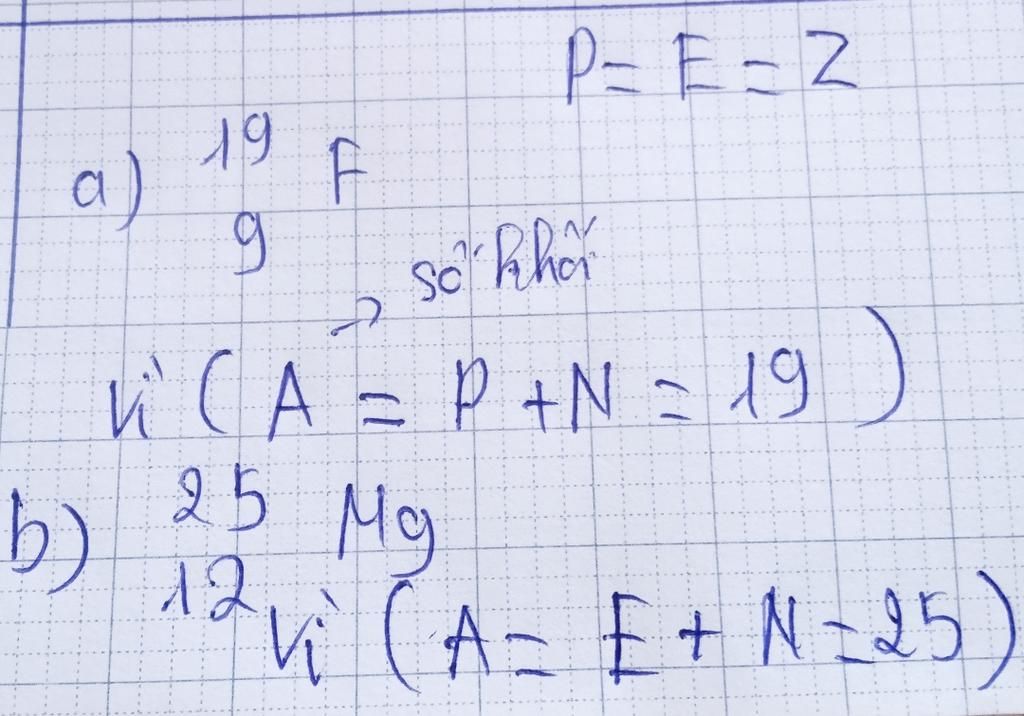 P = E = Z
a) ¹⁹₉ F
→ số khối
Vì ( A = P + N = 19 )
b) ²⁵₁₂ Mg
Vì ( A = E + N = 25 )